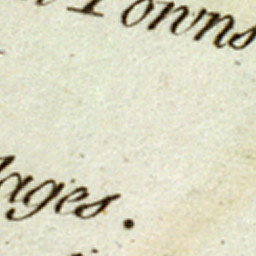 Towns
lages.